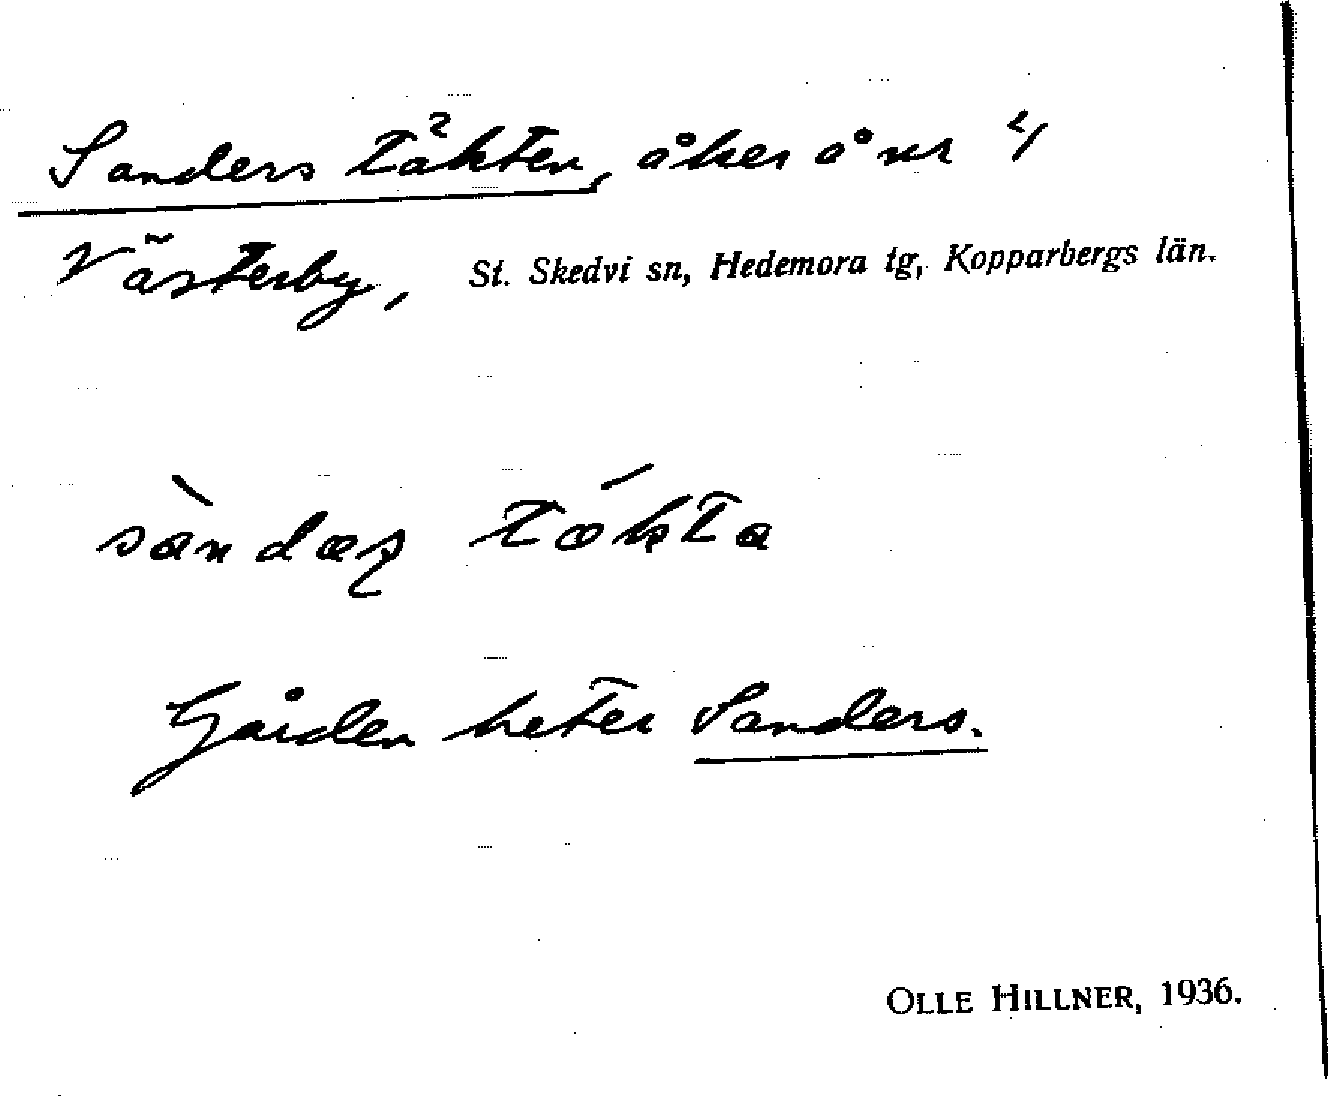 Sanders täkten, åker å nr 4
Västerby, St. Skedvi sn, Hedemora tg, Kopparbergs län.
sàndaʂ tǽkta
Gården heter Sanders.
OLLE HILLNER, 1936.